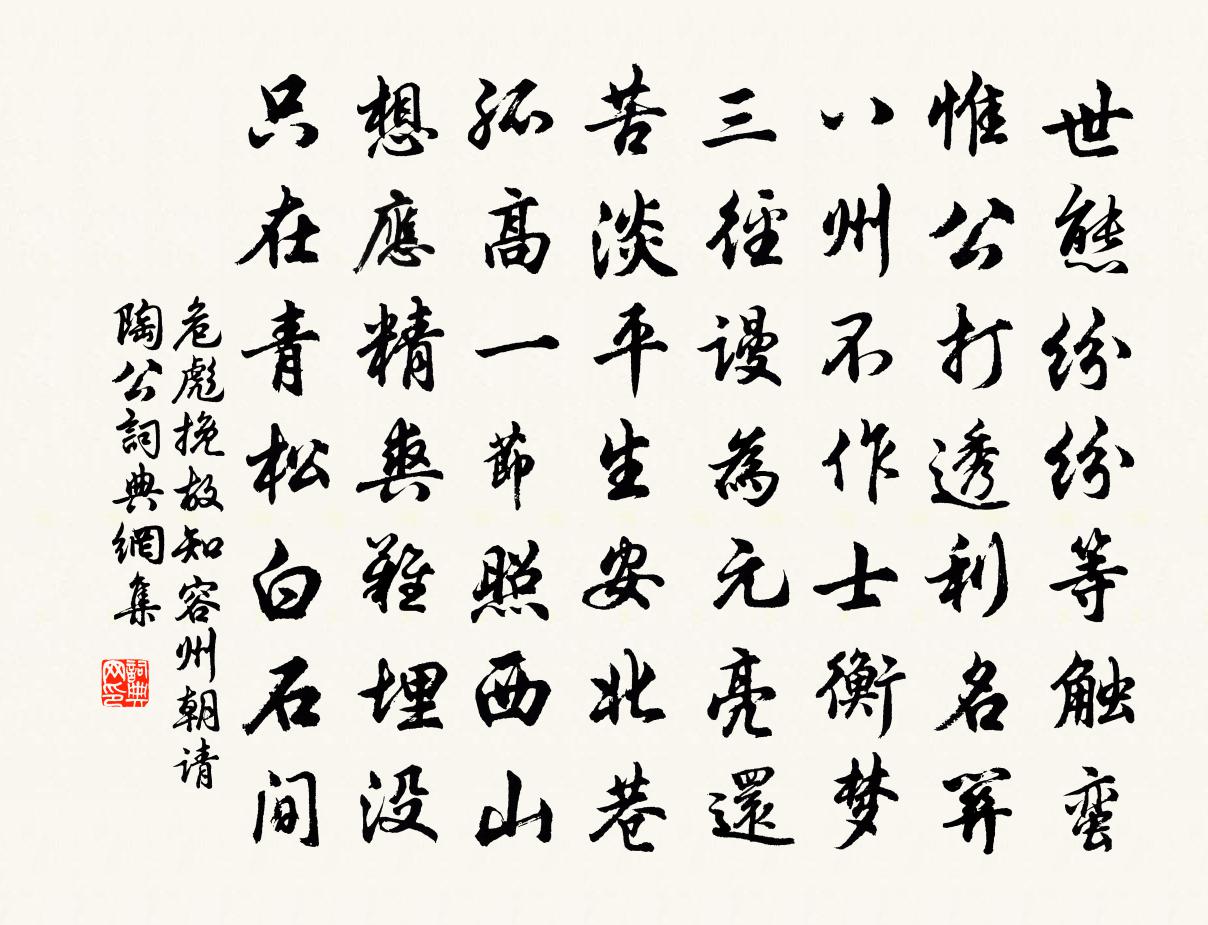 世態纷纷等触蛮
惟公打透利名関
八州不作士衡梦
三徑謾為元亮還
苦淡平生安北巷
孤高一節照西山
想應精爽難埋没
只在青松白石間
危彪挽故知容州朝请
陶公詞典網集
詞典网印